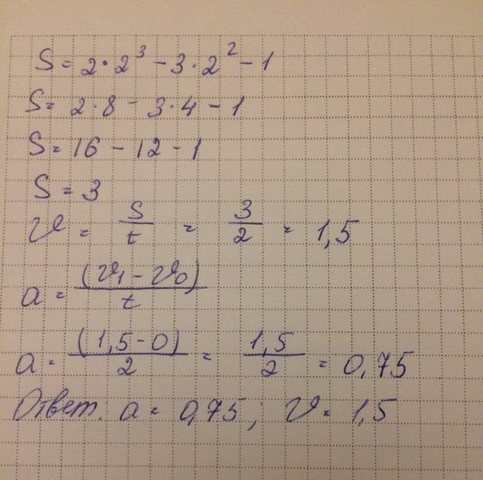 S = 2·2³ - 3·2² - 1
S = 2·8 - 3·4 - 1
S = 16 - 12 - 1
S = 3
v = S/t = 3/2 = 1,5
a = (v₁ - v₀)/t
a = (1,5 - 0)/2 = 1,5/2 = 0,75
Ответ: a = 0,75; v = 1,5